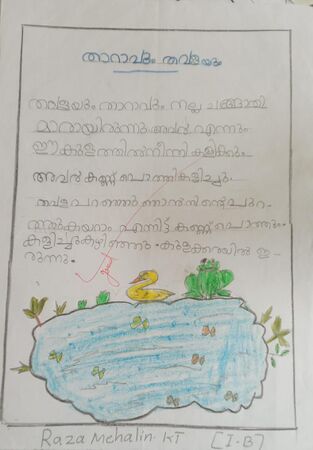 താറാവും തവളയും
തവളയും താറാവും നല്ല ചങ്ങാതി
മാരായിരുന്നു അവർ എന്നും
ഈ കുളത്തിൽ നീന്തി കളിക്കും
അവർ കണ്ണ് പൊത്തികളിച്ചു.
തവള പറഞ്ഞു ഞാൻ നിന്റെ പുറ
ത്ത് കയറാം എന്നിട്ട് കണ്ണ് പൊത്തും.
കളിച്ചുകഴിഞ്ഞു കുളക്കരയിൽ ഇ-
രുന്നു.
Raza Mehalin. KT [I.B]